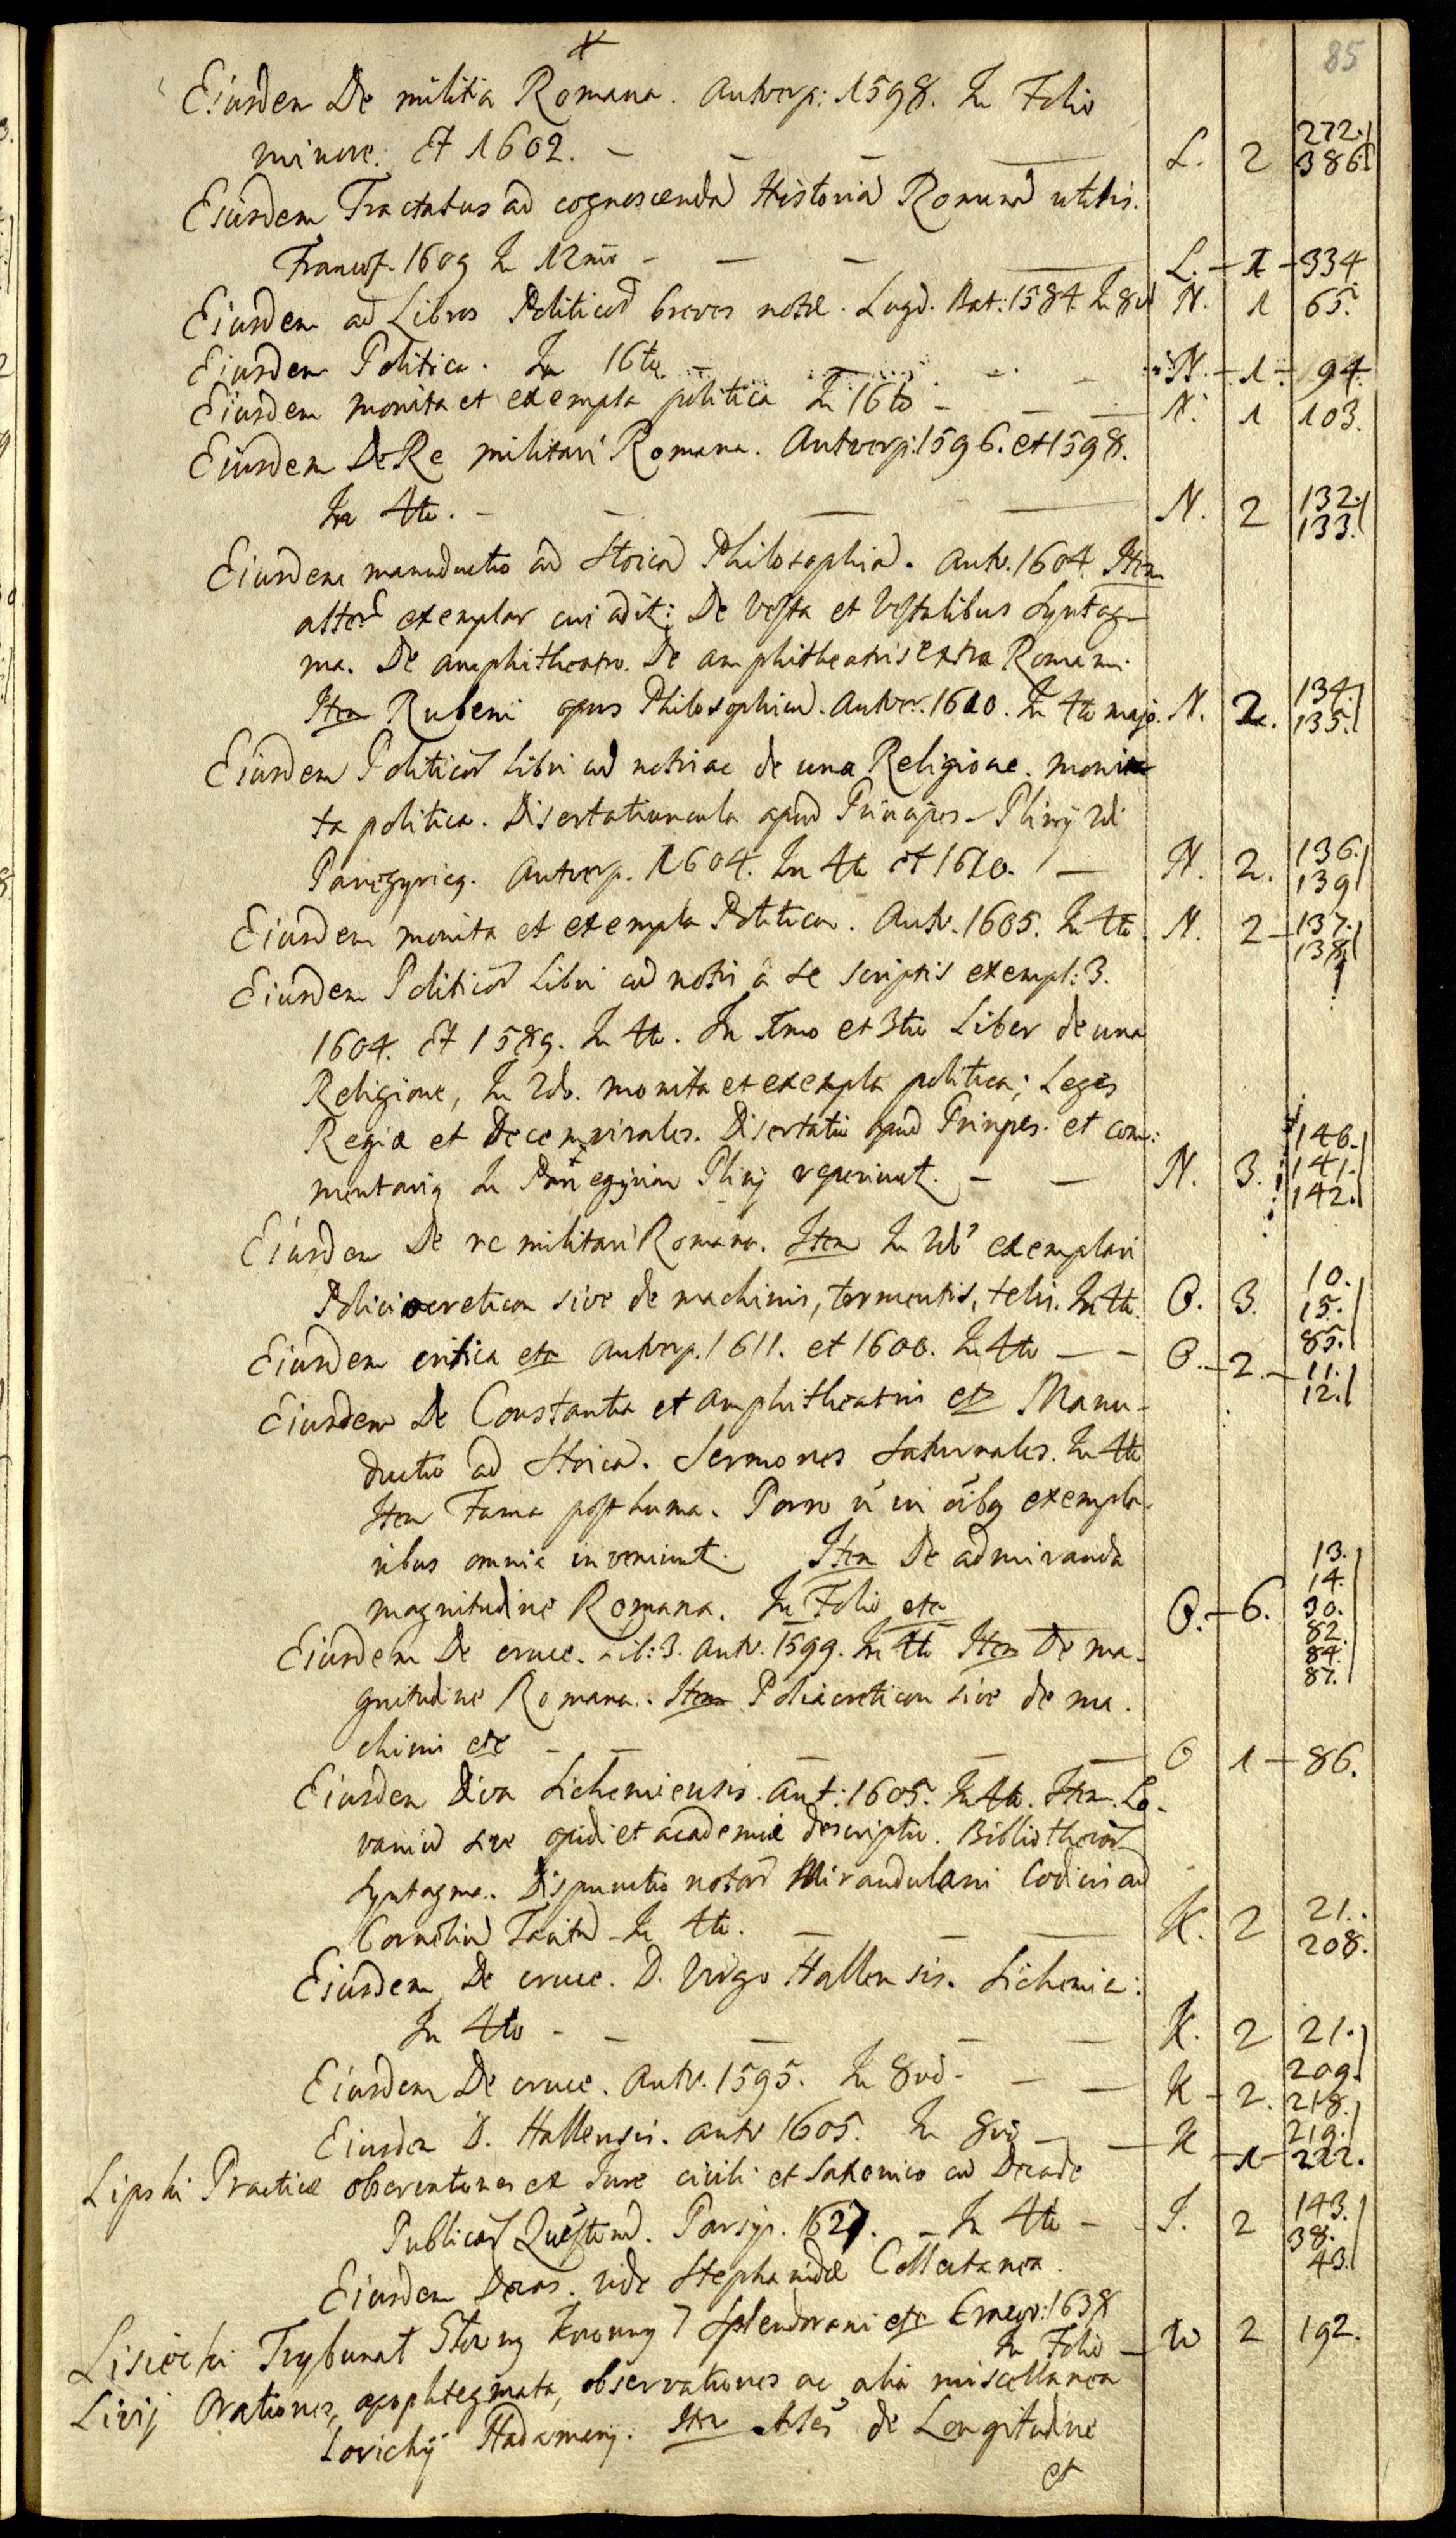 85
Eiusdem De militia Romana. Antverp: 1598. In Folio
minore. Et 1602. — L. 2 272. 386.
Eiusdem Tractatus ad cognoscendā Historiā Romanā utilis.
Francof. 1609 In 12mo — L. — 1 — 334.
Eiusdem ad Libros Politicor breves notæ. Lugd. Bat: 1584. In 8vo N. 1 65.
Eiusdem Politica. In 16to — N. — 1 — 94.
Eiusdem monita et exempla politica In 16to — N. 1 103.
Eiusdem De Re militari Romana. Antverp: 1596. et 1598.
In 4to. — N. 2 132. 133.
Eiusdem manuductio ad Stoicā Philosophiā. Antv. 1604. Item
alter exemplar cui adit: De Vesta et Vestalibus Syntag-
ma. De amphitheatro. De amphitheatris extra Romam.
Item Rubeni opus Philosophicū. Antver. 1610. In 4to majo. N. 2. 134. 135.
Eiusdem Politicor Libri cū notis ac de una Religione. moni
ta politica. Disertatiuncula apud Principes. Plinij 2di
Panegyricq. Antverp. 1604. In 4to et 1610. — N. 2. 136. 139
Eiusdem monita et exempla Politica. Antv. 1605. In 4to. N. 2 — 137. 138.
Eiusdem Politicor Libri cū notis â se scriptis exempl: 3.
1604. Et 1589. In 4to. In 1mo et 3tio Liber de una
Religione, In 2do. monita et exempla politica; Leges
Regiæ et Decemvirales. Disertatio apud Prinpes. et com:
mentariq In Panegyrim Plinij reperiunt. — N. 3. 140. 141. 142.
Eiusdem De re militari Romana. Item In 2do exemplari
Poliorcreticon sive de machinis, tormentis, telis. In 4to. O. 3. 10. 15. 85.
Eiusdem critica etc Antverp. 1611. et 1600. In 4to — — O. — 2. — 11. 12.
Eiusdem De Constantia et Amphitheatris et Manu-
ductio ad Stoicā. Sermones Saturnales. In 4to
Item Fama posthuma. Porro ñ in oîbq exempla-
ribus omnia inveniunt. Item De admiranda
magnitudine Romana. In Folio etc O. — 6. 13. 14. 30. 82. 84. 87.
Eiusdem De cruce. Lib: 3. Antv. 1599. In 4to Item De ma-
gnitudine Romana. Item Poliocreticon sive de ma-
chinis etc — O 1 — 86.
Eiusdem Diva Sichemiensis. Ant: 1605. In 4to. Item. Lo-
vaniū sive opidi et academiæ descriptio. Bibliothecar
Syntagma. Dispunctio notar Mirandulani Codicis ad
Corneliū Tacitū In 4to. — K. 2 21. 208.
Eiusdem De cruce. D. Virgo Hallensis. Sichemia:
In 4to — K. 2 21. 209.
Eiusdem De cruce. Antv. 1595. In 8vo — K — 2. 218. 219.
Eiusdem D. Hallensis. Antv 1605. In 8vo — K — 1 — 222.
Lipski Practicæ observationes ex Jure civili et Saxonico cū Decade
Publicar Quæstionū. 1627. — In 4to — J. 2 143. 38. 43.
Eiusdem Decas. Vide Stephanidæ Collectanea.
Lisiecki Trybunał Główny Koronny 7 Splendorami etc Cracov: 1638
In Folio — W 2 192.
Livij Orationes, apophtegmata, observationes ac alia miscellanea
Lorichij Hadamarij. Item de Longitudine
et